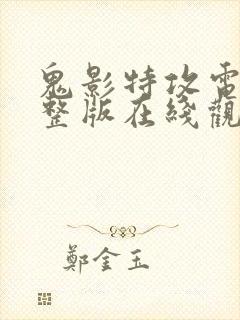 鬼影特攻電
整版在綫觀
鄭金玉